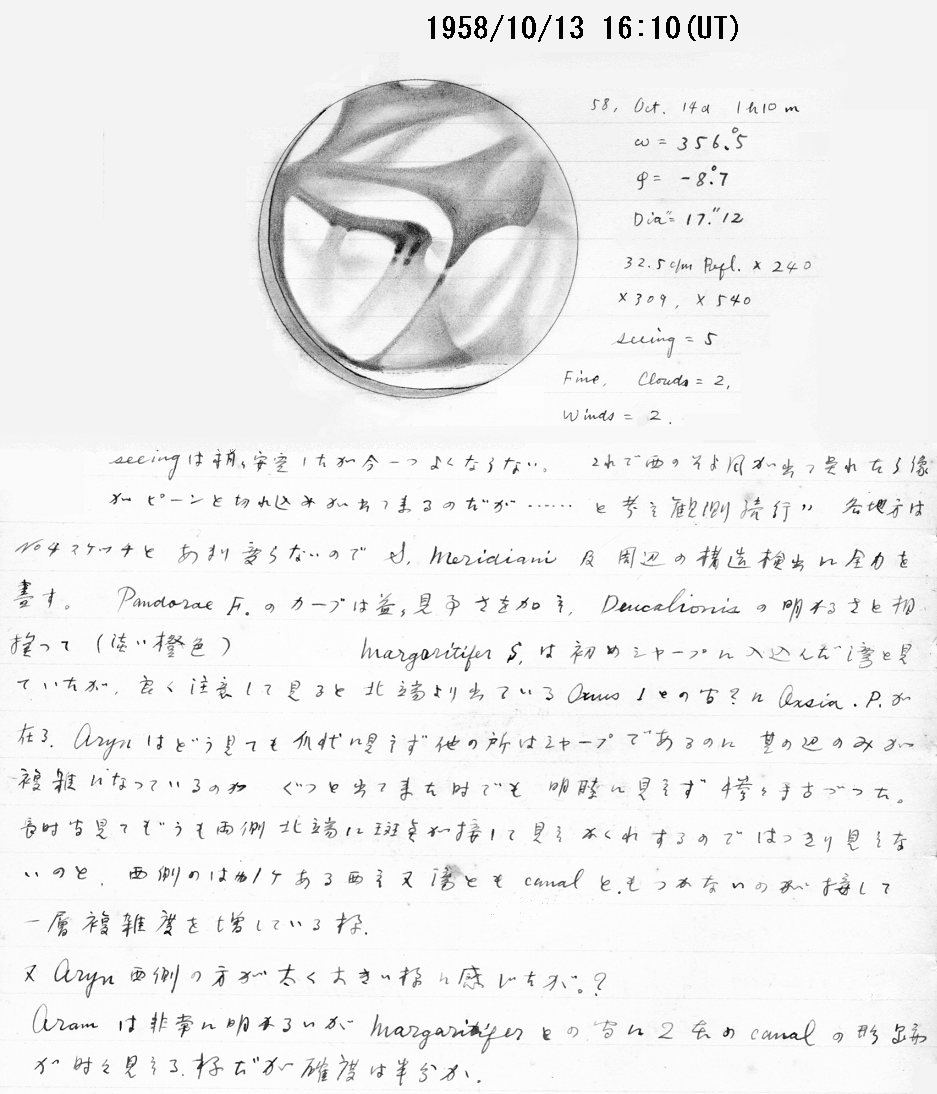 1958/10/13 16:10(UT)
58, Oct. 14d 1h10m
ω = 356.°5
φ = -8.°7
Dia = 17."12
32.5c/m Refl. × 240
×309, ×540
seeing = 5
Fine, Clouds = 2,
Winds = 2.
seeingは稍々安定したが今一つよくならない。 これで西のそよ風が出て呉れたら像
がピーンと切れ込みが出て来るのだが…… と考え観測続行〃 各地方は
No4スケッチとあまり変らないので S. Meridiani 及周辺の構造検出に全力を
盡す。 Pandorae F. のカーブは益々見事さを加え, Deucalionis の明るさと相
揆って (淡い橙色) Margaritifer S, は初めシャープに入込んだ湾と見
ていたが, 良く注意して見ると北端より出ている Oxus との間?に Oxsia. P. が
在る. Aryn はどう見ても爪状に見えず他の所はシャープであるのに 其の辺のみが
複雑になっているのか ぐっと出て来た時でも 明瞭に見えず 手古づった。
長時間見てもどうも両側北端に斑点が接して見えかくれするのではっきり見えな
いのと, 西側のは ある 又湾とも canal ともつかないのが接して
一層複雑度を増している様.
又 Aryn 西側の方が太く大きい様に感じたが。?
Aram は非常に明るいが Margaritifer との間に 2本の canal の形跡
が時々見える. 様だが確度は半分か.